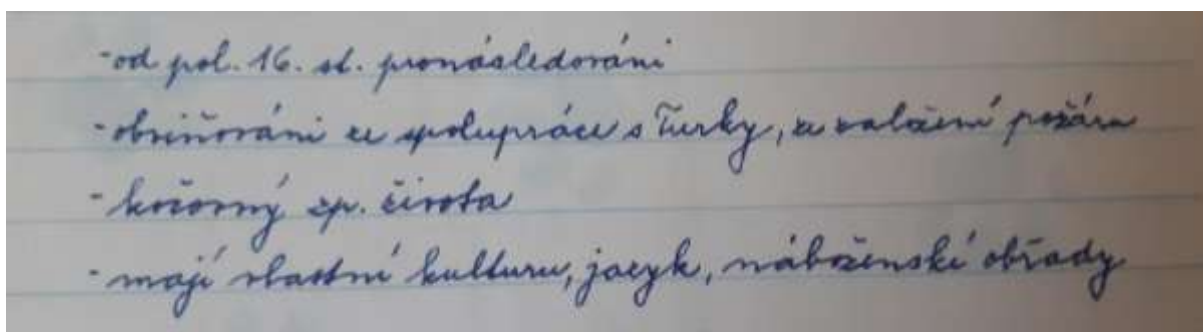 -od pol. 16. st. pronásledováni
-obviňováni ze spolupráce s Turky, ze založení požáru
- kočovný zp. života
- mají vlastní kulturu, jazyk, náboženské obřady